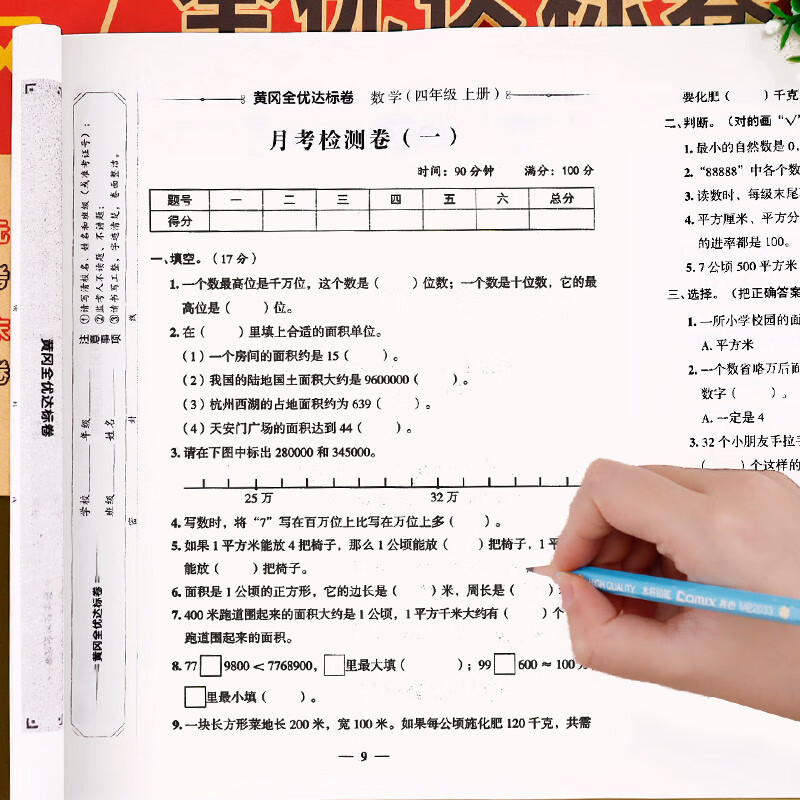 全优达标卷
黄冈全优达标卷 数学(四年级 上册)
月考检测卷(一)
时间:90分钟 满分:100分
题号 一 二 三 四 五 六 总分
得分
一、填空。(17分)
1.一个数最高位是千万位,这个数是( )位数;一个数是十位数,它的最
高位是( )位。
2.在( )里填上合适的面积单位。
(1)一个房间的面积约是15( )。
(2)我国的陆地国土面积大约是9600000( )。
(3)杭州西湖的占地面积约为639( )。
(4)天安门广场的面积达到44( )。
3.请在下图中标出280000和345000。
25万 32万
4.写数时,将“7”写在百万位上比写在万位上多( )。
5.如果1平方米能放4把椅子,那么1公顷能放( )把椅子,1平
能放( )把椅子。
6.面积是1公顷的正方形,它的边长是( )米,周长是( )
7.400米跑道围起来的面积大约是1公顷,1平方千米大约有( )个
跑道围起来的面积。
8.77□9800<7768900,□里最大填( );99□600≈100万
□里最小填( )。
9.一块长方形菜地长200米,宽100米。如果每公顷施化肥120千克,共需
— 9 —
要化肥( )千克
二、判断。(对的画“√”
1.最小的自然数是0,
2.“88888”中各个数
3.读数时,每级末尾
4.平方厘米、平方分
的进率都是100。
5.7公顷500平方米
三、选择。(把正确答案
1.一所小学校园的面
A.平方米
2.一个数省略万后面
数字( )。
A.一定是4
3.32个小朋友手拉手
( )个这样的
注意事项
①请写清校名、姓名和班级(或准考证号);
②监考人不读题、不讲题;
③请书写工整,字迹清楚,卷面整洁。
学校 年级
班级 姓名
密 封 线
黄冈全优达标卷
黄冈全优达标卷
HIGH QUALITY 木杆铅笔 Comix 齐心 MP2033